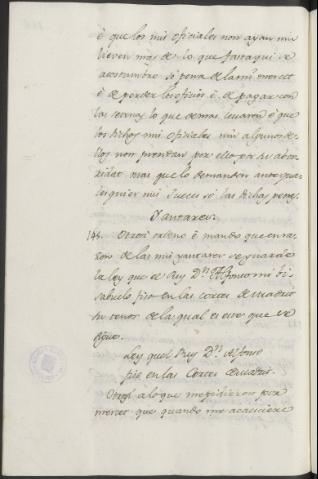 è que los mis oficiales non ayan nin
lieven mas de lo que fasta aqui se
acostumbro so pena de la mi merced
è de perder los oficios è de pagar con
las setenas lo que demas levaren è que
los dichos mis oficiales nin algunos de
llos non prendan por ello por su abto
ridat mas que lo demanden ante qua
lesquier mis Jueces so las dichas penas
Yantares
Otrosi ordeno è mando que en ra
zon de las mis yantares se guarde
la ley que el Rey Dn Alfonso mi bi
sabuelo fizo en las cortes de Madrid
su tenor de la qual es este que se
sigue.
Ley quel Rey Dn Alfonso
fizo en las Cortes de Madrid.
Otrosi a lo que me pidieron por
merced que quando me acaesciere